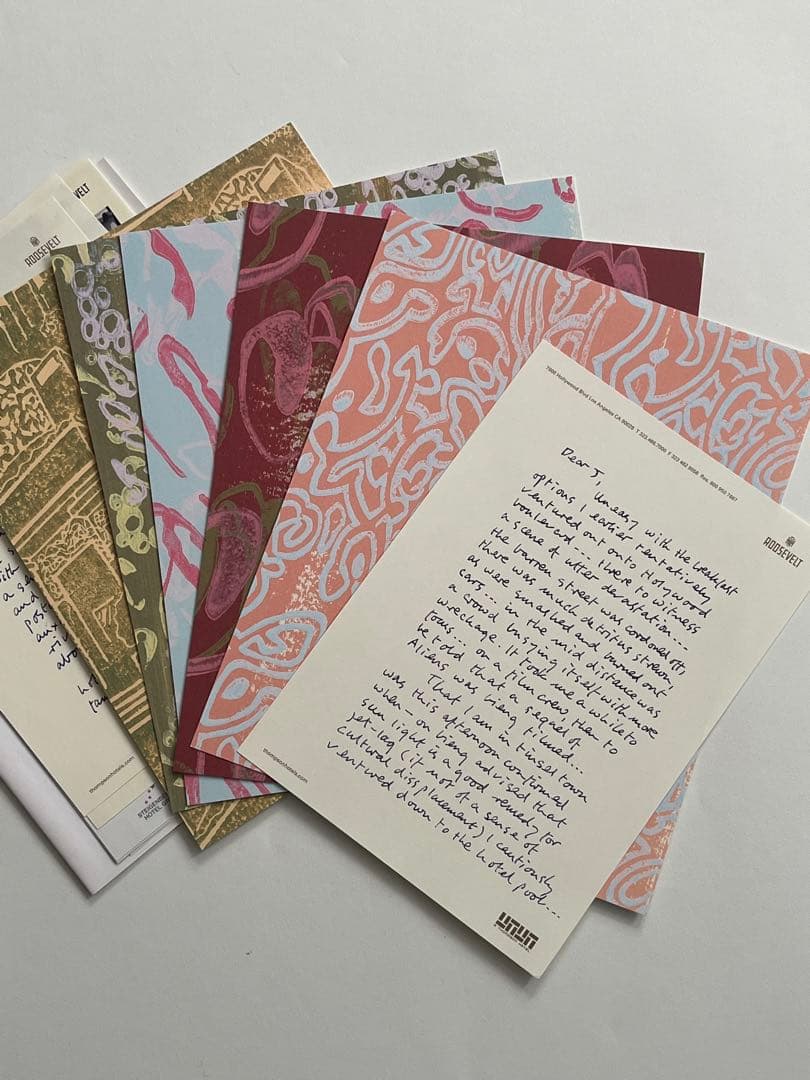 7000 Hollywood Blvd Los Angeles CA 90028 T 323.466.7000 F 323.462.8056 Res. 800.950.7667
ROOSEVELT
Dear J, Uneasy with the breakfast
options I earlier tentatively
ventured out onto Hollywood
boulevard --- there to witness
a scene of utter devastation...
the barren street was cordoned off,
there was much detritus strewn,
as were smashed and burned out
cars... in the mid distance was
a crowd busying itself with more
wreckage. It took me a while to
focus... on a film crew, then to
be told that a sequel of
Aliens was being filmed...
That I am in tinsel town
was this afternoon confirmed
when - on being advised that
sun light is a good remedy for
jet-lag (if not of a sense of
cultural displacement) I cautiously
ventured down to the hotel pool...
thompsonhotels.com
ROOSEVELT
VELT
with
a se
and
Post
aux
abo
thompsonhotels.com
STEIGENB
HOTEL